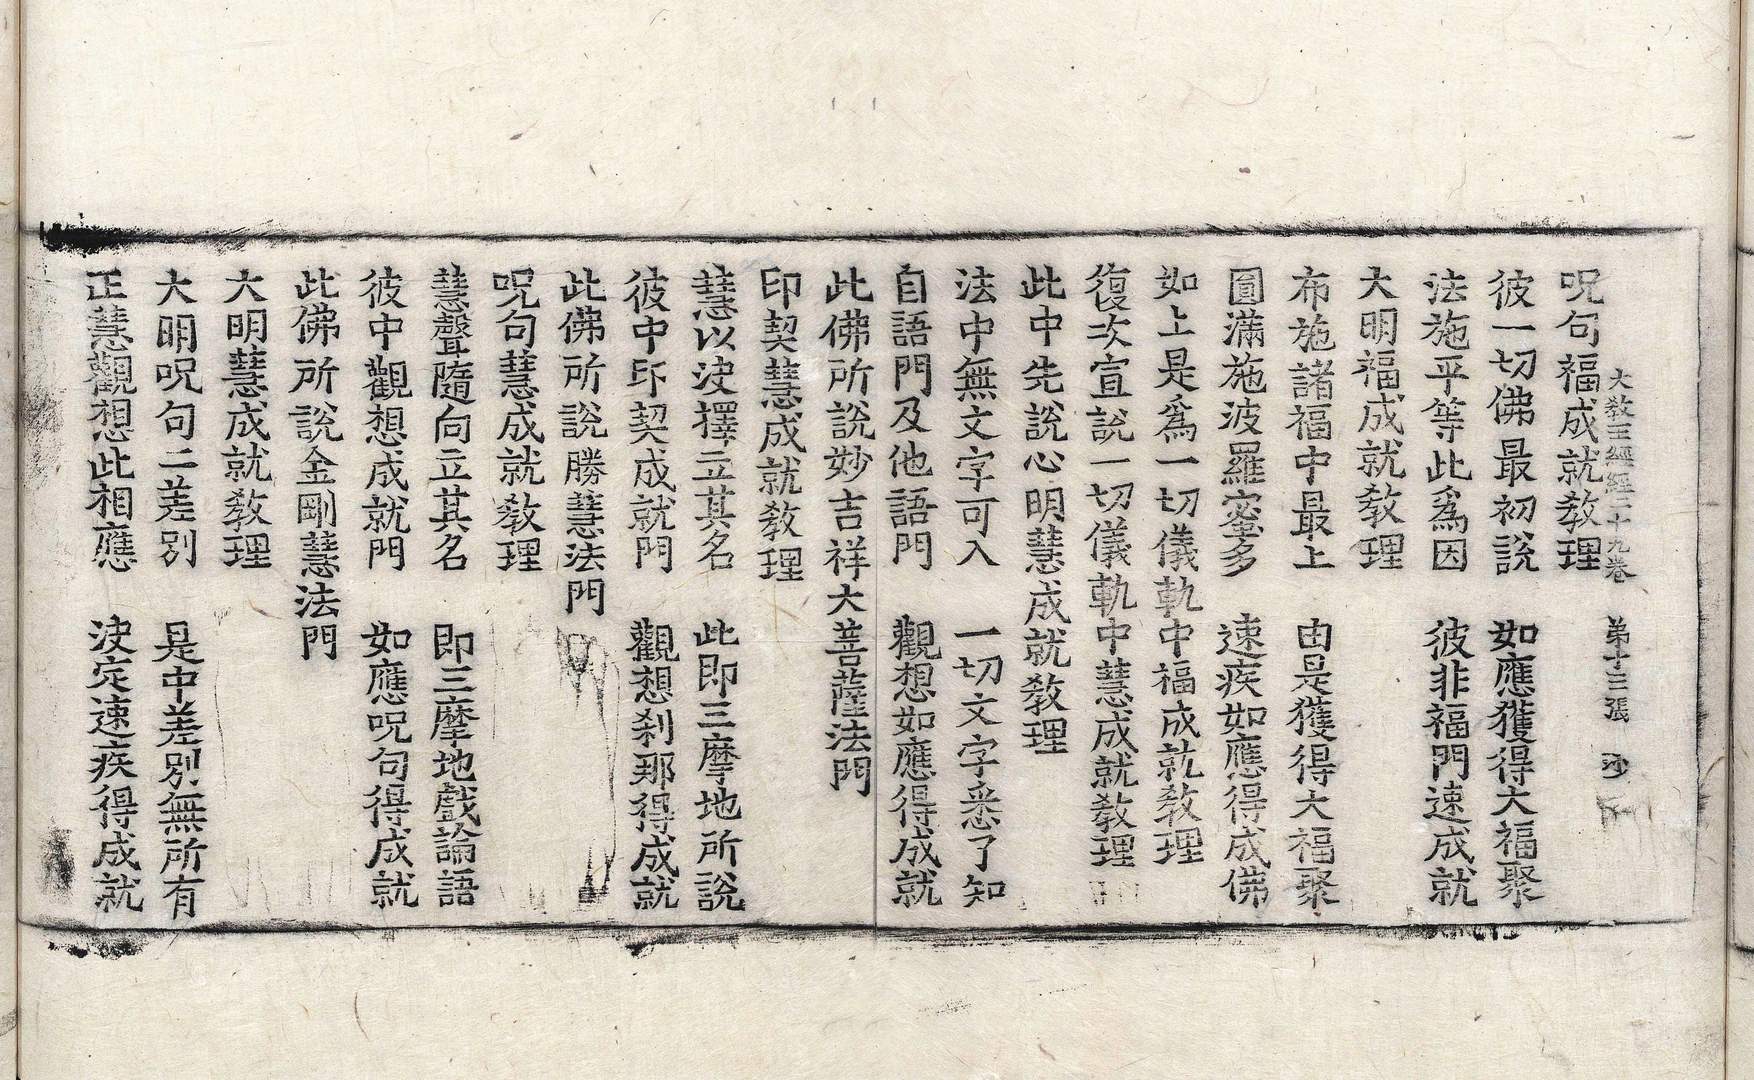 大教王經經二十九卷　第十三張　沙
呪句福成就教理
彼一切佛最初說　如應獲得大福聚
法施平等此爲因　彼非福門速成就
大明福成就教理
布施諸福中最上　由是獲得大福聚
圓滿施波羅蜜多　速疾如應得成佛
如上是爲一切儀軌中福成就教理
復次宣說一切儀軌中慧成就教理
此中先說心明慧成就教理
法中無文字可入　一切文字悉了知
自語門及他語門　觀想如應得成就
此佛所說妙吉祥大菩薩法門
印契慧成就教理
慧以決擇立其名　此即三摩地所說
彼中印契成就門　觀想刹那得成就
此佛所說勝慧法門
呪句慧成就教理
慧聲隨向立其名　即三摩地戲論語
彼中觀想成就門　如應呪句得成就
此佛所說金剛慧法門
大明慧成就教理
大明呪句二差別　是中差別無所有
正慧觀想此相應　決定速疾得成就